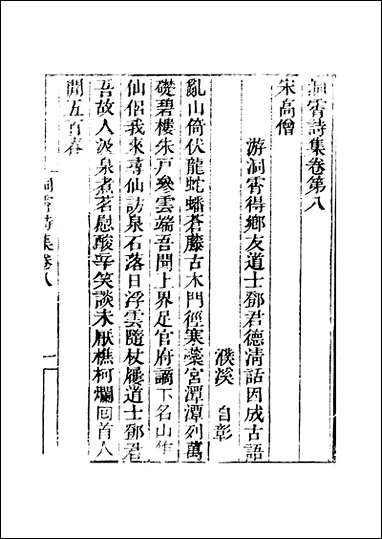 洞霄詩集卷第八
宋高僧
游洞霄得鄉友道士鄧君德清話因成古語
濮溪 自彰
亂山倚伏龍蛇蟠蒼藤古木門徑寒蘂宮潭潭列萬
礎碧樓朱戸參雲端吾聞上界足官府謫下名山作
仙侶我來尋仙訪泉石落日浮雲隨杖屨道士鄧君
吾故人汲泉煮茗慰酸辛笑談未厭樵柯爛回首人
間五百春
洞霄詩集卷八
一